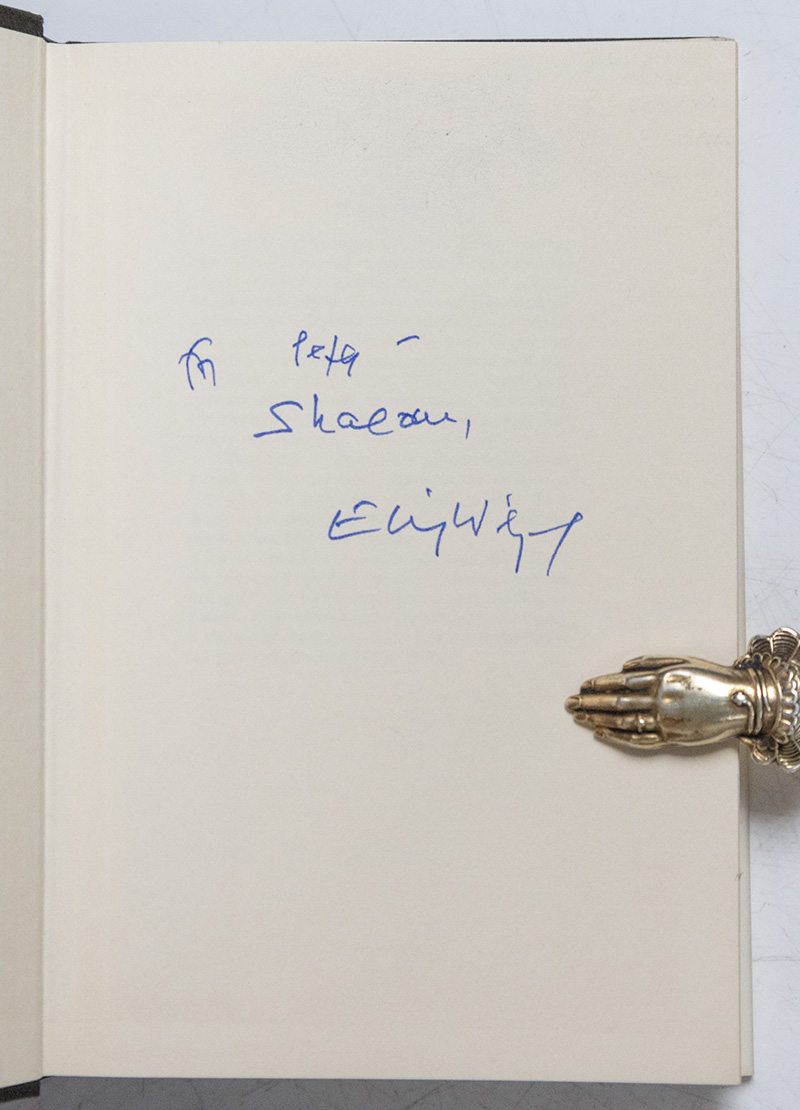 For Peter –
Shalom,
Elie Wiesel